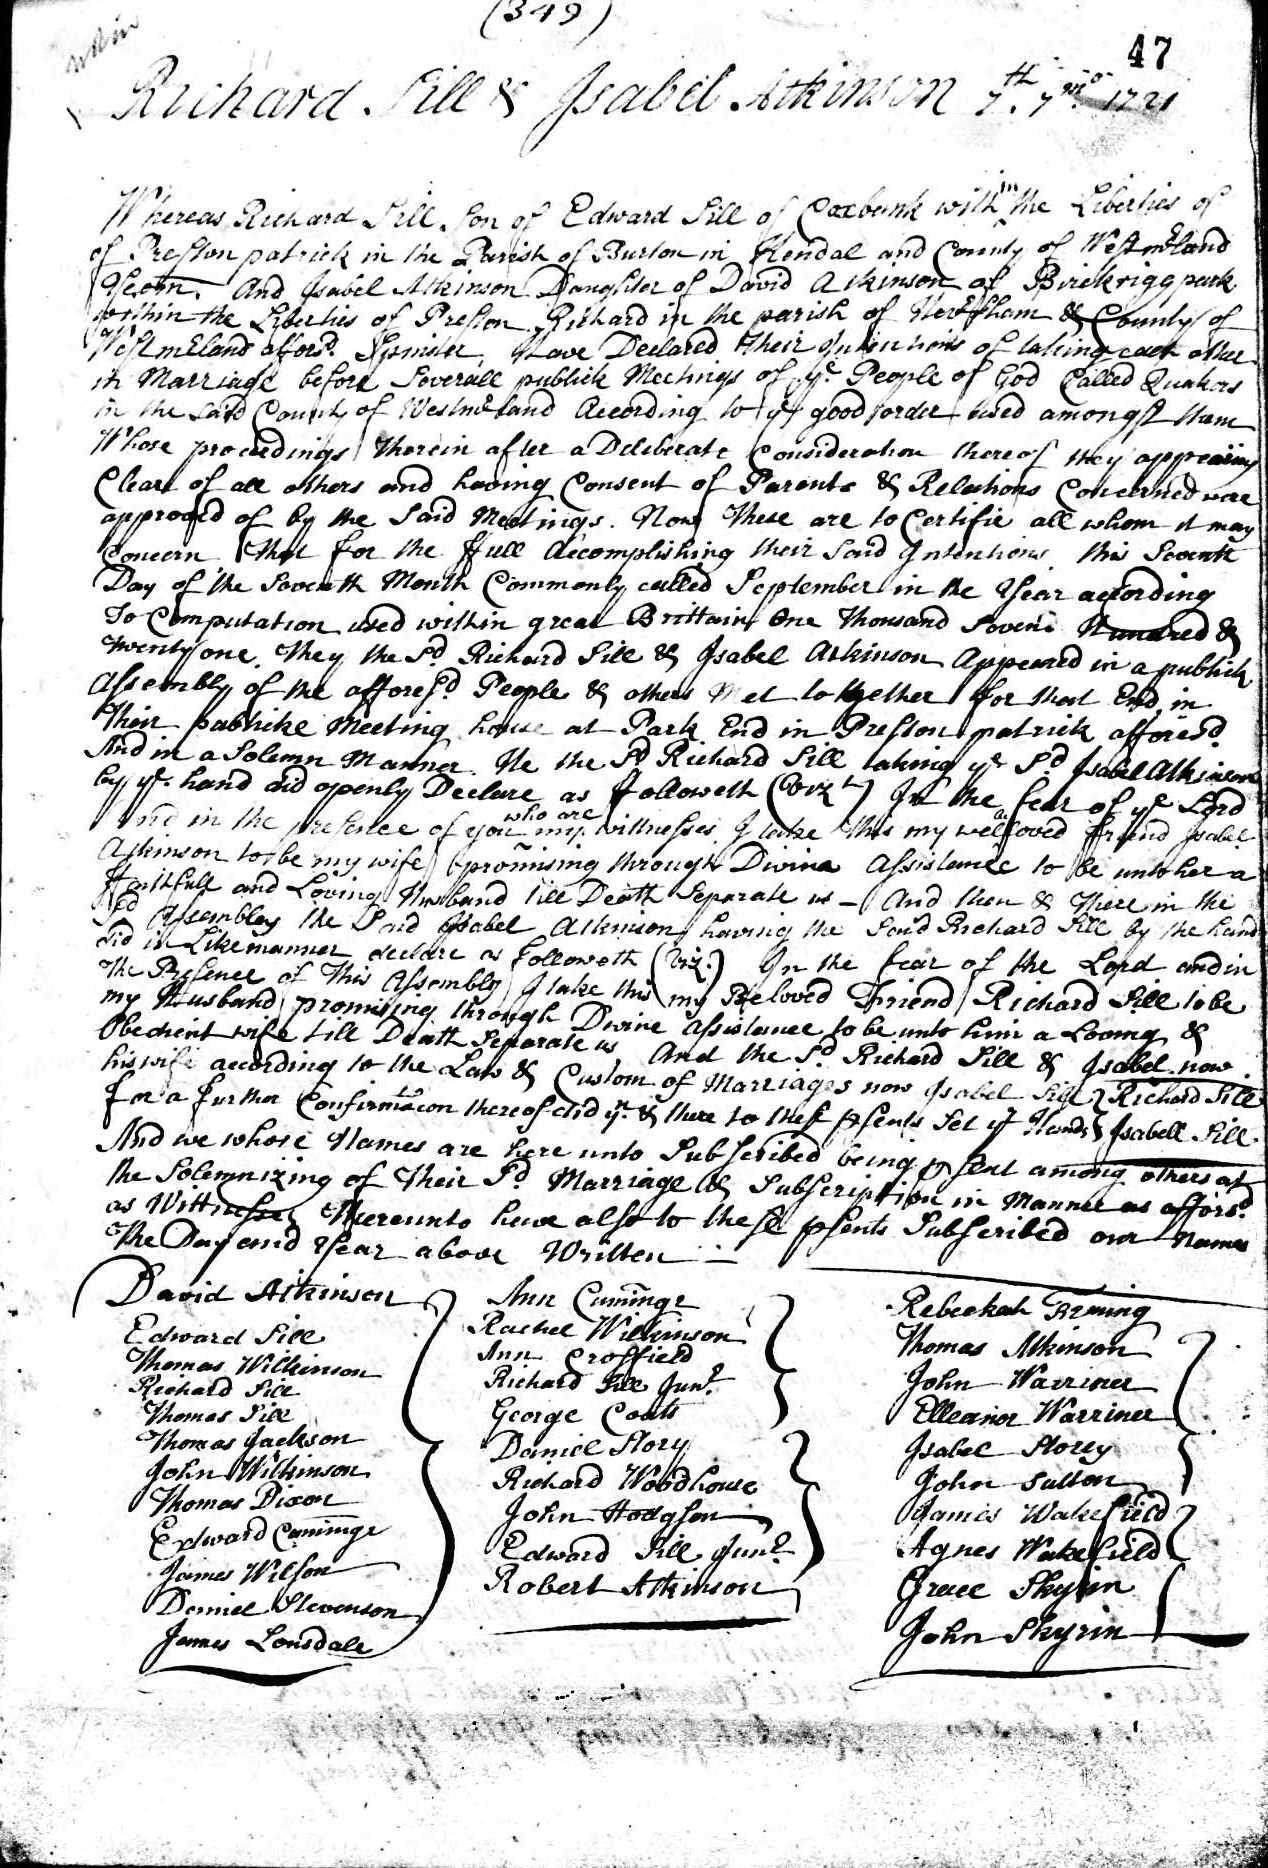 (349)
47
Richard Sill & Isabel Atkinson 7th. 7mo. 1721
Whereas Richard Sill Son of Edward Sill of Coxbank with in the Liberties of
of Preston patrick in the Parish of Burton in Kendal and County of Westmerland
Yeom. And Isabel Atkinson Daughter of David Atkinson of Birckrigg park
within the Liberties of Preston Richard in the parish of Heversham & County of
Westmerland afforsd. Spinster, Have Declared Their Intentions of taking each other
in Marriage before Severall publick Meetings of ye People of God Called Quakers
in the Said County of Westmerland According to ye good order used amongst them
Whose proceedings Therein after a Deliberate Consideration thereof they appearing
Clear of all others and having Consent of Parents & Relations Concerned were
approved of by the Said Meetings. Now These are to Certifie all whom it may
Concern That for the ffull Accomplishing their Said Intentions this Seventh
Day of the Seventh Month Commonly called September in the Year according
To Computation used within great Brittain One Thousand Seven Hundred &
twenty one. They the Sd. Richard Sill & Isabel Atkinson Appeared in a publick
Assembly of the afforesd. People & others Met together for that End, in
Their publike Meeting house at Park End in Preston patrick afforesd.
And in a Solemn Manner He the Sd Richard Sill taking ye Sd Isabel Atkinson
by ye hand did openly Declare as ffolloweth (vizt) In the fear of ye Lord
And in the presence of you who are my wittnesses I take this my welbeloved friend Isabel
Atkinson to be my wife promising through Divine Assistance to be unto her a
ffaithfull and Loving Husband till Death Separate us - And then & There in the
Sd Assembley the Said Isabel Atkinson having the Said Richard Sill by the hand
did in Likemanner declare as followeth (Viz.) In the fear of the Lord and in
the Presence of This Assembly I take this my Beloved Friend Richard Sill to be
my Husband promising through Divine Assistance to be unto him a Loving &
Obedient wife till Death Separate us And the Sd. Richard Sill & Isabel now
his wife according to the Law & Custom of Marriages now Isabel Sill } Richard Sill
for a further Confirmation thereof did yn. & there to these psents Set yr Hands } Isabell Sill
And we whose Names are here unto Subscribed being psent among others at
the Solemnizing of Their Sd. Marriage & Subscription in Manner as afforsd.
as Wittnesses Thereunto have also to these psents Subscribed our Names
The Day and Year above Written
David Atkinson
Edward Sill
Thomas Wilkinson
Richard Sill
Thomas Sill
Thomas Jackson
John Wilkinson
Thomas Dixon
Edward Cuminge
James Wilson
Daniel Stevenson
James Lonsdale
Ann Cuminge
Rachel Wilkinson
Ann Crosfield
Richard Sill Junr.
George Coats
Daniel Story
Richard Woodhouse
John Hodgson
Edward Sill Junr.
Robert Atkinson
Rebeckah Fleming
Thomas Atkinson
John Warriner
Elleanor Warriner
Isabel Storey
John Sutton
James Wakefield
Agnes Wakefield
Grace Skyrin
John Skyrin